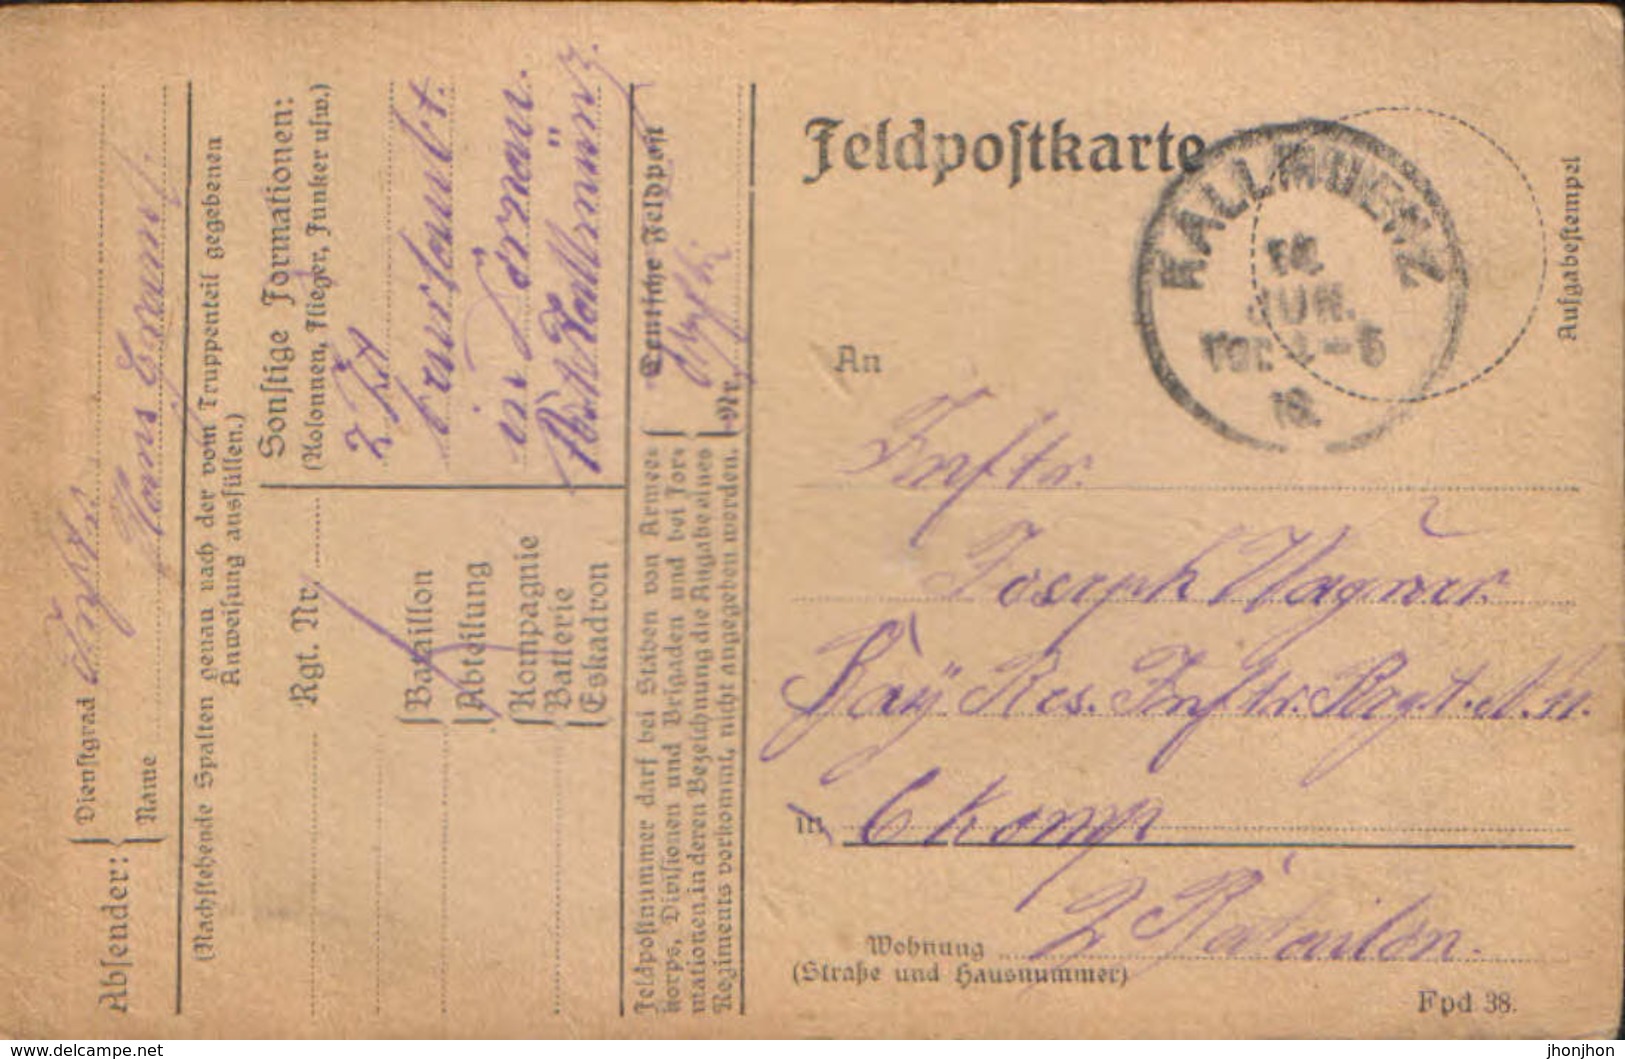 Feldpostkarte
KALLMUENZ
JUN.
18.
Aufgabestempel
An
Inftr.
Joseph Wagner
Bay Res. Inftr. Regt. N.
in 6 Komp
2 Batailon.
Wohnung
(Straße und Hausnummer)
Fpd 38.
Absender:
Dienstgrad Inftr.
Name Hans
(Nachstehende Spalten genau nach der vom Truppenteil gegebenen
Anweisung ausfüllen.)
Rgt. Nr.
Bataillon
Abteilung
Kompagnie
Batterie
Eskadron
Sonstige Formationen:
(Kolonnen, Flieger, Funker usw.)
beurlaubt.
in
Post Kallmünz.
Feldpostnummer darf bei Stäben von Armee-
korps, Divisionen und Brigaden und bei For-
mationen, in deren Bezeichnung die Angabe eines
Regiments vorkommt, nicht angegeben werden.
Deutsche Feldpost
Nr.
www.delcampe.net
jhonjhon